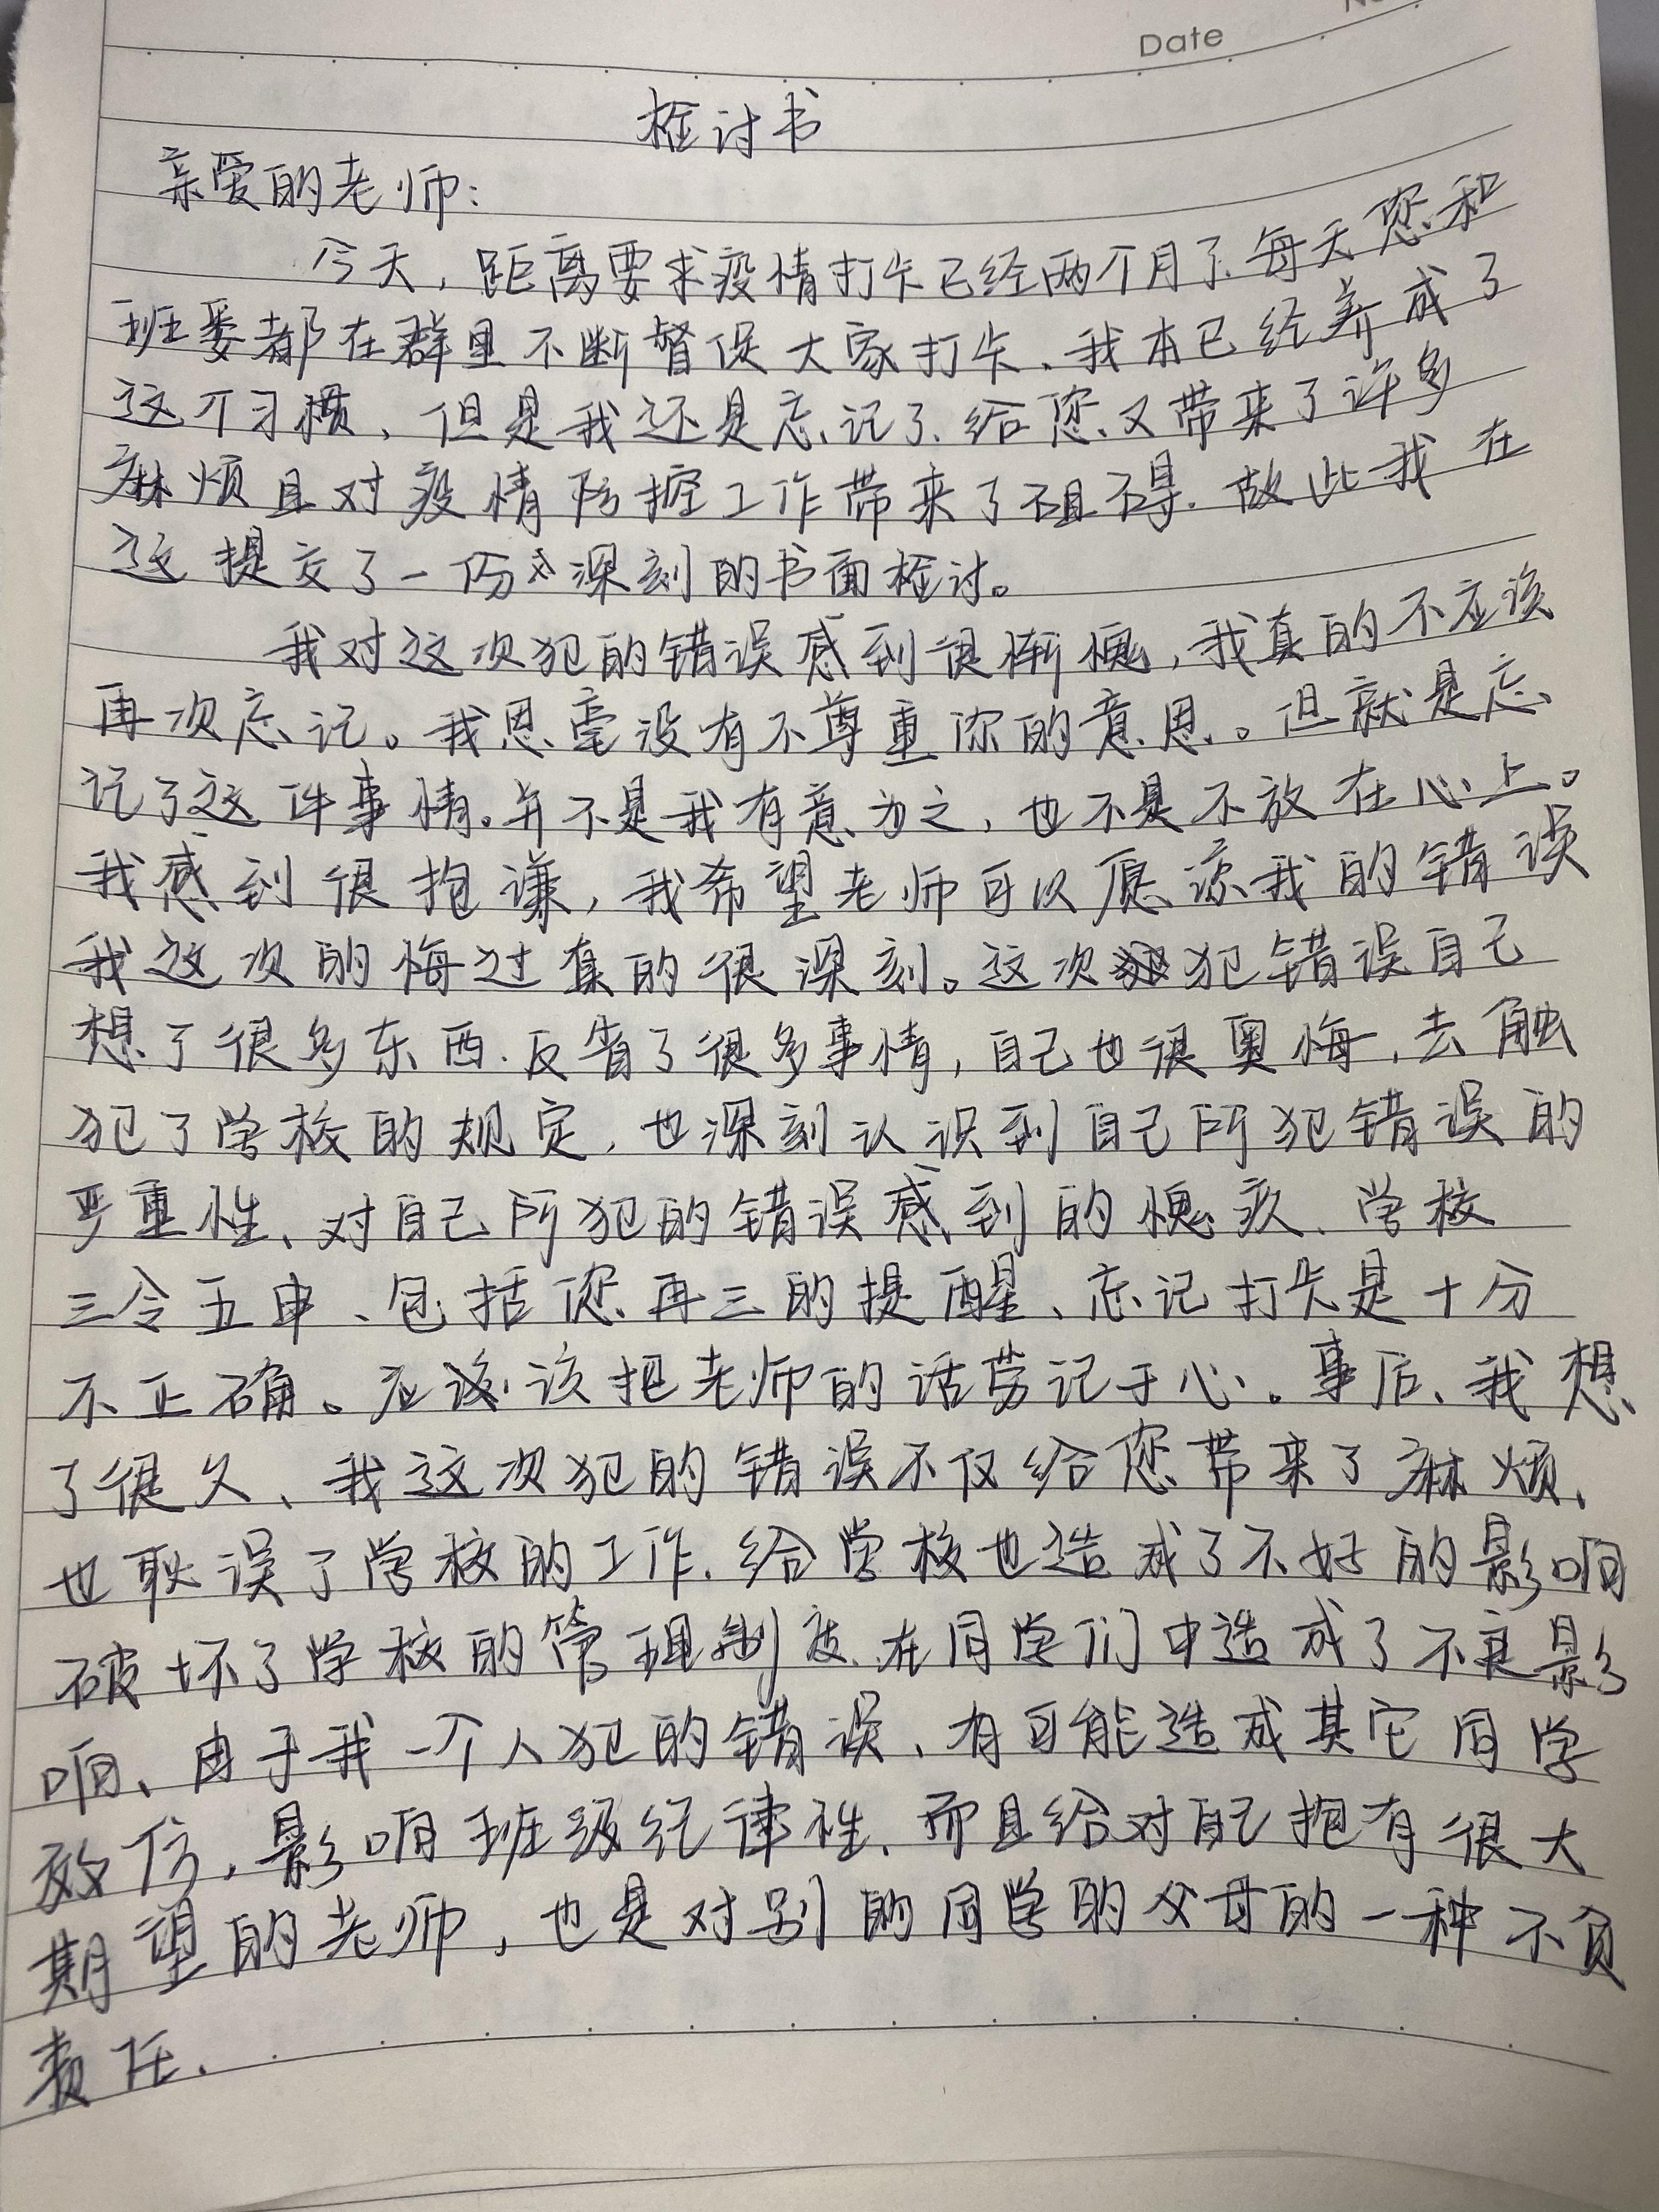 Date
检讨书
亲爱的老师:
今天,距离要求疫情打卡已经两个月了、每天您和
班委都在群里不断督促大家打卡、我本已经养成了
这个习惯、但是我还是忘记了、给您又带来了许多
麻烦且对疫情防控工作带来了阻碍.故此我在
这提交了一份深刻的书面检讨。
我对这次犯的错误感到很惭愧,我真的不应该
再次忘记。我思毫没有不尊重你的意思。但就是忘
记了这件事情。并不是我有意为之,也不是不放在心上。
我感到很抱谦,我希望老师可以愿谅我的错误
我这次的悔过真的很深刻。这次犯错误自己
想了很多东西.反省了很多事情,自己也很奥悔,去触
犯了学校的规定,也深刻认识到自己所犯错误的
严重性、对自己所犯的错误感到的愧疚、学校
三令五申、包括您再三的提醒、忘记打卡是十分
不正确。应该把老师的话劳记于心。事后、我想
了很久、我这次犯的错误不仅给您带来了麻烦、
也耽误了学校的工作.给学校也造成了不好的影响
破坏了学校的管理制度、在同学们中造成了不良影
响、由于我一个人犯的错误、有可能造成其它同学
效仿,影响班级纪律性、而且给对自己抱有很大
期望的老师,也是对别的同学的父母的一种不负
责任.